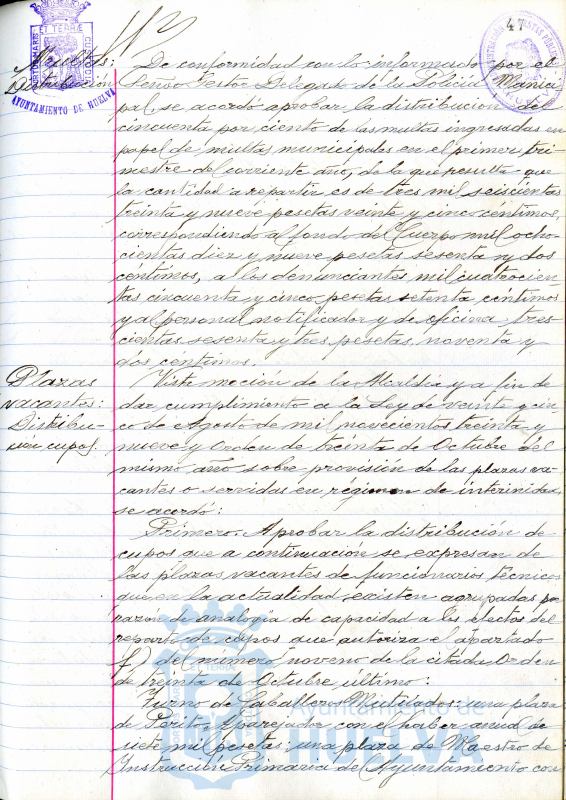 47
AYUNTAMIENTO DE HUELVA
Multas:
Distribución
De conformidad con lo informado por el
Señor Gestor Delegado de la Policía Munici
pal, se acordó aprobar la distribución del
cincuenta por ciento de las multas ingresadas en
papel de multas municipales en el primer tri-
mestre del corriente año, de la que resulta que
la cantidad a repartir es de tres mil seiscientas
treinta y nueve pesetas veinte y cinco céntimos,
correspondiendo al fondo del Cuerpo mil ocho-
cientas diez y nueve pesetas sesenta y dos
céntimos, a los denunciantes mil cuatrocien-
tas cincuenta y cinco pesetas setenta céntimos
y al personal notificador y de oficina tres-
cientas sesenta y tres pesetas, noventa y
dos centimos.
Plazas
vacantes:
Distribu-
ción cupos.
Vista moción de la Alcaldía y a fin de
dar cumplimiento a la Ley de veinte y cin
co de Agosto de mil novecientos treinta y
nueve y Orden de treinta de Octubre del
mismo año sobre provisión de las plazas va-
cantes o servidas en régimen de interinidad,
se acordó:
Primero. Aprobar la distribución de
cupos que a continuación se expresan de
las plazas vacantes de funcionarios técnicos
que en la actualidad existen agrupadas por
razón de analogía de capacidad a los efectos del
reparto de cupos que autoriza el apartado
f) del número noveno de la citada Orden
de treinta de Octubre último:
Turno de Caballeros Mutilados: una plaza
de Perito Aparejador con el haber anual de
siete mil pesetas; una plaza de Maestro de
Instrucción Primaria de Ayuntamiento con
Ayuntamiento de
HUELVA